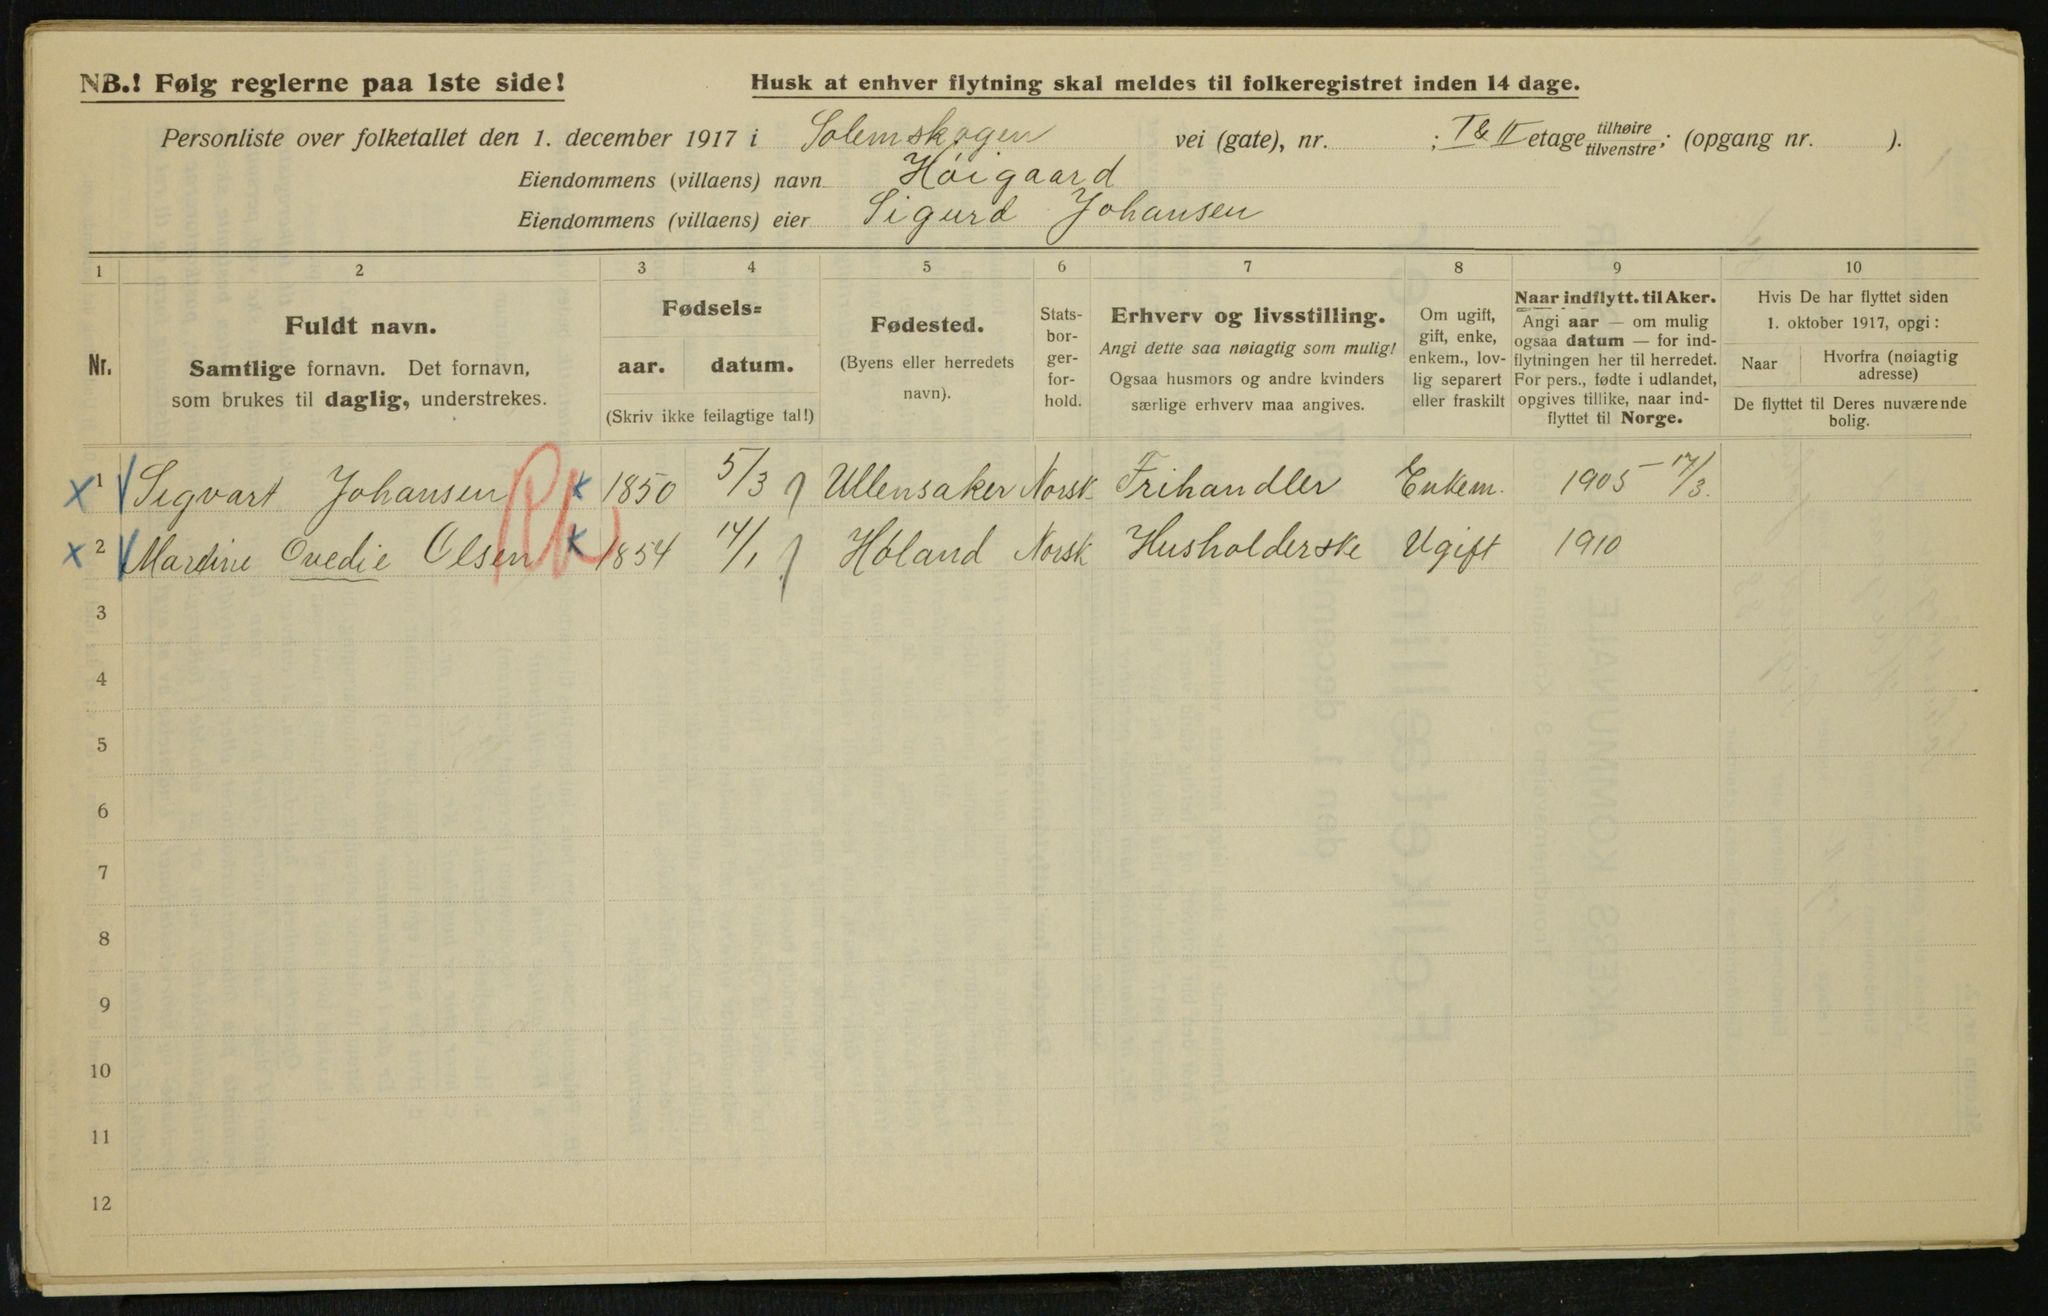 NB.! Følg reglerne paa 1ste side!
Husk at enhver flytning skal meldes til folkeregistret inden 14 dage.
Personliste over folketallet den 1. december 1917 i Solemskogen vei (gate), nr. ; I & II etage tilhøire tilvenstre; (opgang nr. ).
Eiendommens (villaens) navn Høigaard
Eiendommens (villaens) eier Sigurd Johansen
1 2 3 4 5 6 7 8 9 10
Nr.
Fuldt navn.
Samtlige fornavn. Det fornavn,
som brukes til daglig, understrekes.
Fødsels=
aar. datum.
(Skriv ikke feilagtige tal!)
Fødested.
(Byens eller herredets
navn).
Stats-
bor-
ger-
for-
hold.
Erhverv og livsstilling.
Angi dette saa nøiagtig som mulig!
Ogsaa husmors og andre kvinders
særlige erhverv maa angives.
Om ugift,
gift, enke,
enkem., lov-
lig separert
eller fraskilt
Naar indflytt. til Aker.
Angi aar — om mulig
ogsaa datum — for ind-
flytningen her til herredet.
For pers., fødte i udlandet,
opgives tillike, naar ind-
flyttet til Norge.
Hvis De har flyttet siden
1. oktober 1917, opgi:
Naar
Hvorfra (nøiagtig
adresse)
De flyttet til Deres nuværende
bolig.
x 1 Sigvart Johansen K 1850 5/3 Ullensaker Norsk Frihandler Enkem. 1905 17/3.
x 2 Martine Ovedie Olsen K 1854 14/1 Høland Norsk Husholderske Ugift 1910
3
4
5
6
7
8
9
10
11
12